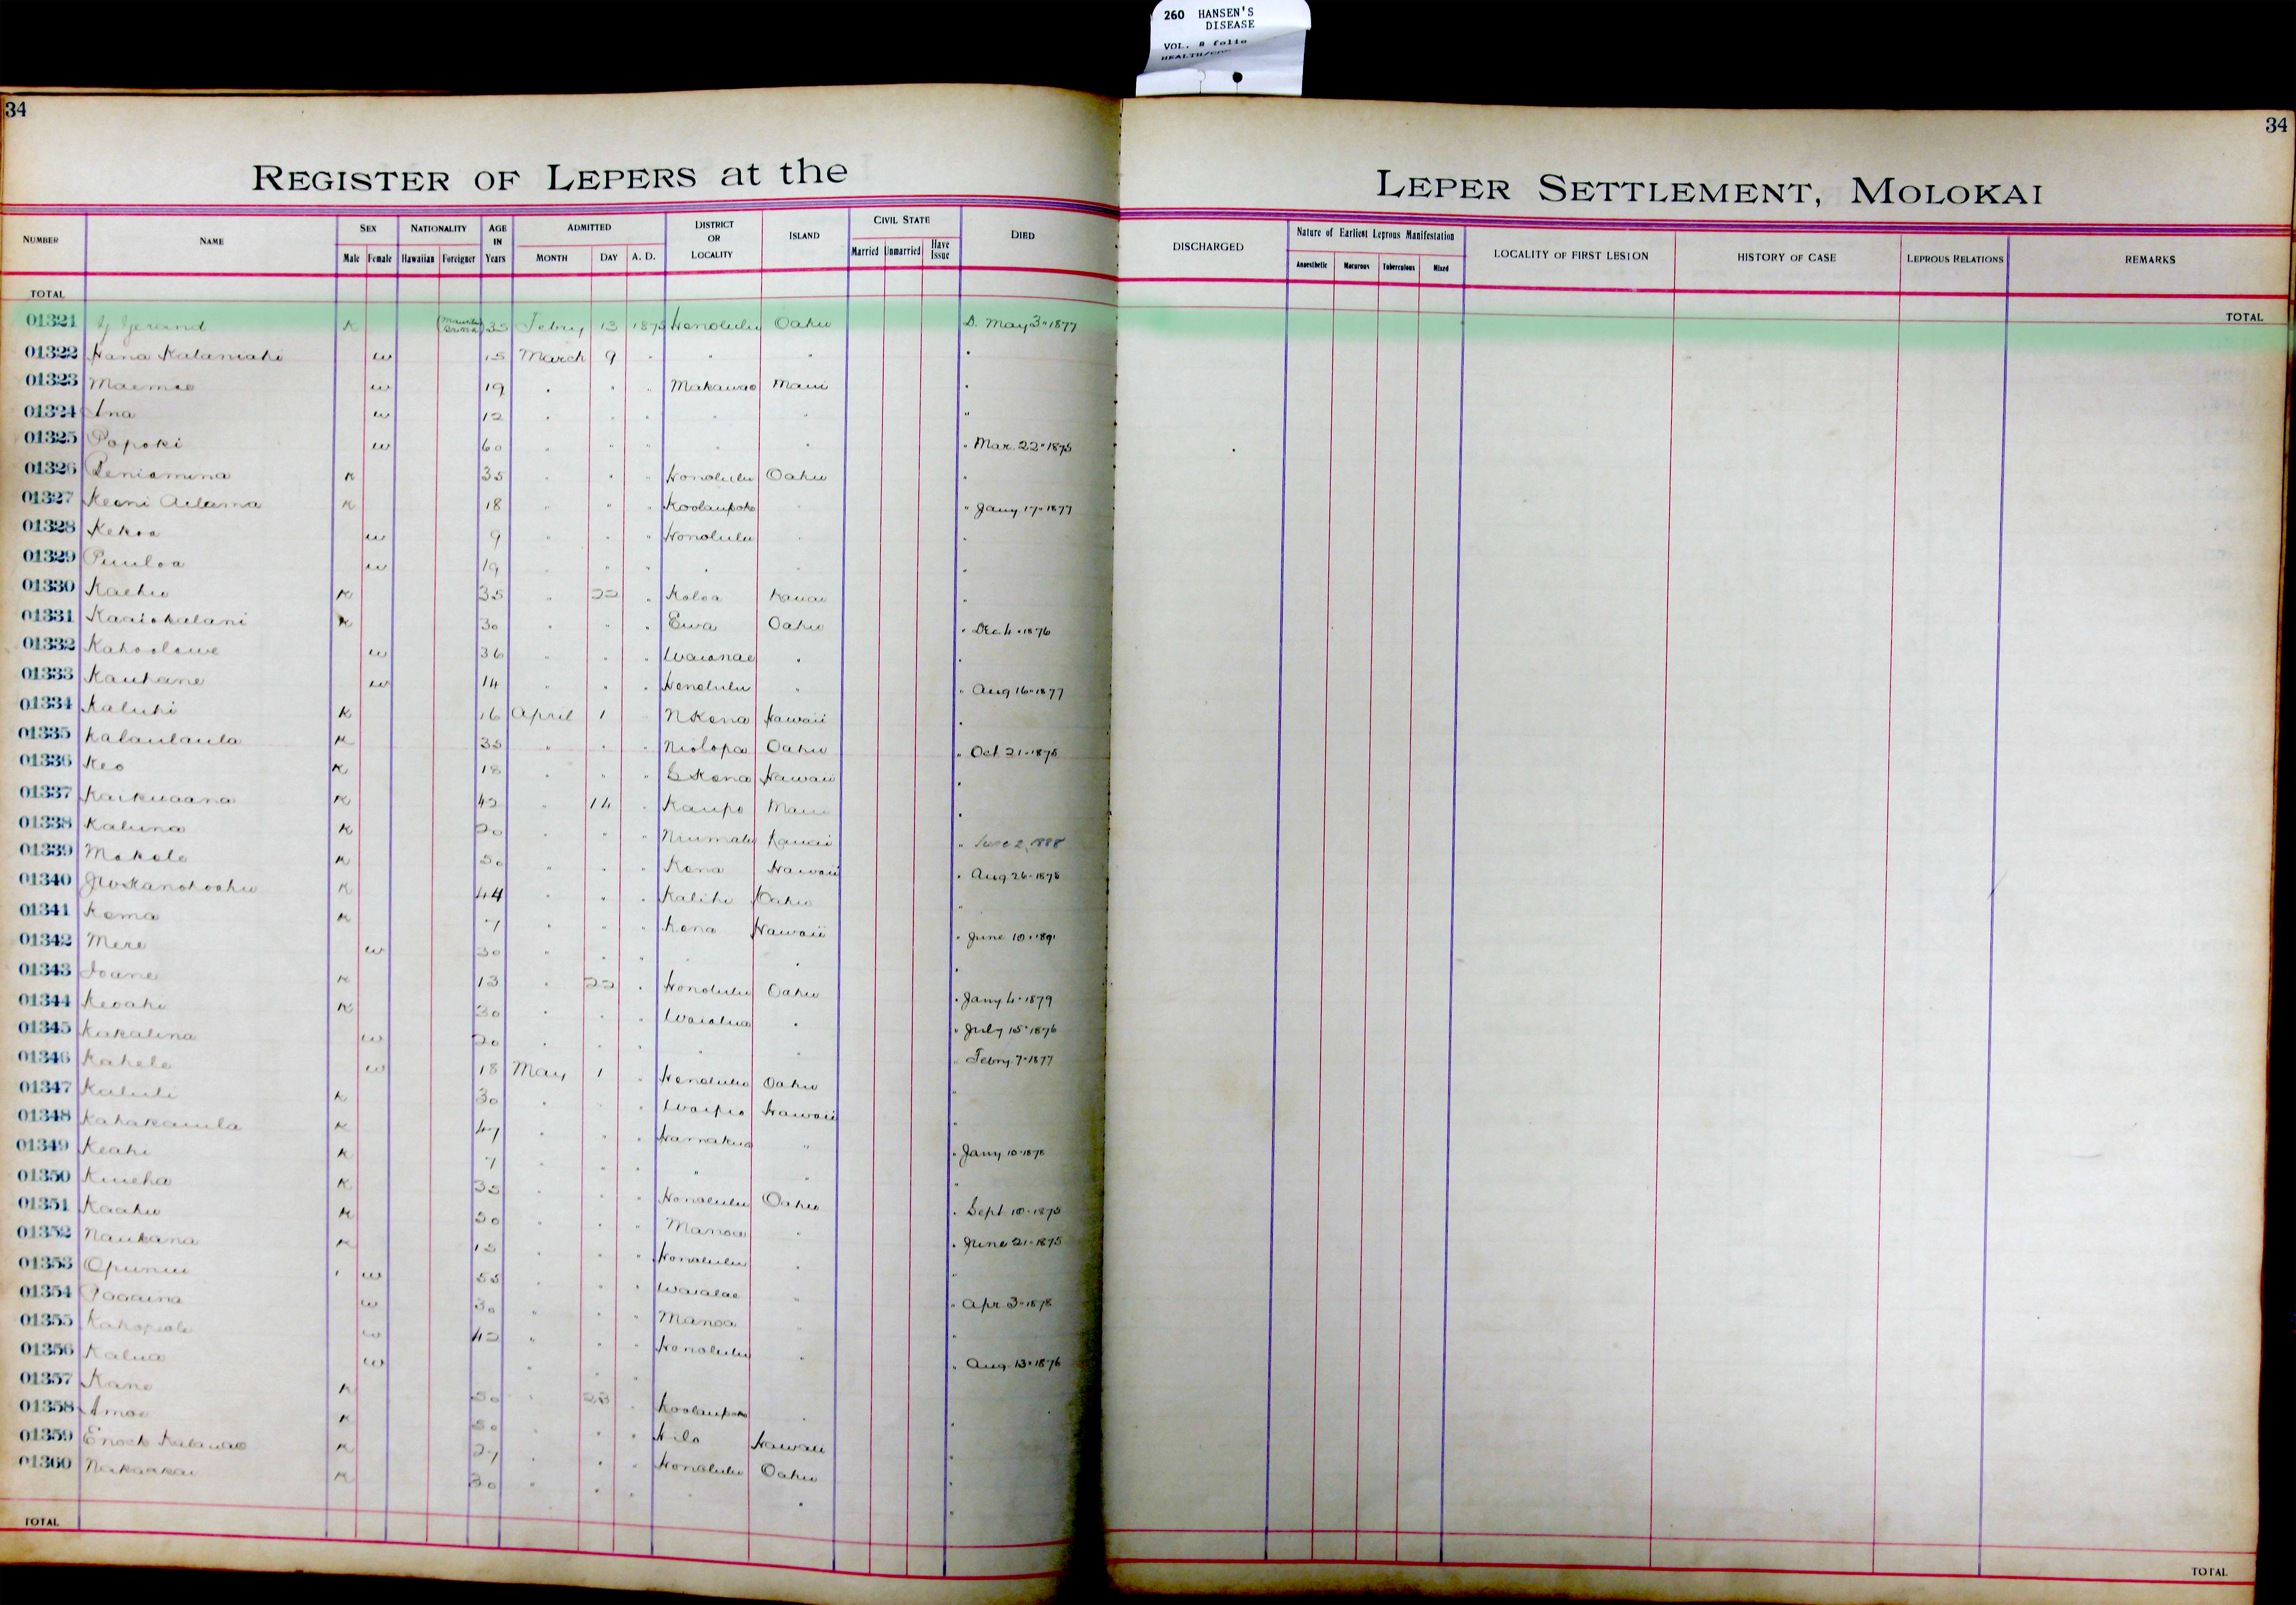 260 HANSEN'S
DISEASE
VOL. 8 folio
34
34
REGISTER OF LEPERS at the
LEPER SETTLEMENT, MOLOKAI
NUMBER NAME SEX NATIONALITY AGE IN Years ADMITTED DISTRICT OR LOCALITY ISLAND CIVIL STATE DIED
Male Female Hawaiian Foreigner MONTH DAY A. D. Married Unmarried Have Issue
DISCHARGED Nature of Earliest Leprous Manifestation LOCALITY OF FIRST LESION HISTORY OF CASE LEPROUS RELATIONS REMARKS
Anaesthetic Macurous Tuberculous Mixed
TOTAL
TOTAL
01321 K 35 Febry 13 1875 Honolulu Oahu D. May 3 1877
01322 Hana Kalaniahi w 15 March 9 " " "
01323 Maemae w 19 " " " Makawao Maui "
01324 Ina w 12 " " " " " "
01325 Popoki w 60 " " " " " " Mar 22 1875
01326 Peniamina K 35 " " " Honolulu Oahu "
01327 Keoni Adama K 18 " " " Koolaupoko " " Jany 17 1877
01328 Kekoa w 9 " " " Honolulu " "
01329 Puuloa w 19 " " " " " "
01330 Kaehu K 35 " 22 " Koloa Kauai "
01331 Kaaiokalani K 30 " " " Ewa Oahu " Dec 4 1876
01332 Kahoolawe w 36 " " " Waianae " "
01333 Kauhane w 14 " " " Honolulu " " Aug 16 1877
01334 Kaluhi K 16 April 1 " N Kona Hawaii "
01335 Kalaulaula K 35 " " " Niolopa Oahu " Oct 21 1878
01336 Keo K 18 " " " S Kona Hawaii "
01337 Kaikuaana K 42 " 14 " Kaupo Maui "
01338 Kaluna K 20 " " " Niumalu Kauai " June 2, 1888
01339 Makole K 50 " " " Kona Hawaii " Aug 26 1878
01340 K 44 " " " Kalihi Oahu "
01341 Kema K 7 " " " Kona Hawaii " June 10 1891
01342 Mere w 30 " " " " " "
01343 Ioane K 13 " 22 " Honolulu Oahu " Jany 4 1879
01344 Keoahi K 30 " " " Waialua " " July 15 1876
01345 Kakalina w 20 " " " " " " Febry 7 1877
01346 Kahele w 18 May 1 " Honolulu Oahu "
01347 Kaluli K 30 " " " Waipio Hawaii "
01348 Kahakauila K 47 " " " Hamakua " " Jany 10 1878
01349 Keahi K 7 " " " " " "
01350 Kuueha K 35 " " " Honolulu Oahu " Sept 10 1875
01351 Kaahu K 50 " " " Manoa " " June 21 1875
01352 Naukana K 15 " " " Honolulu " "
01353 Opunui w 55 " " " Waialae " " Apr 3 1878
01354 Paaaina w 30 " " " Manoa " "
01355 w 42 " " " Honolulu " " Aug 13 1876
01356 Kalua w " " "
01357 Kane K 50 " 28 " Koolaupoko " "
01358 Amoe K 50 " " " Hilo Hawaii "
01359 Enoch Kalauao K 27 " " " Honolulu Oahu "
01360 Nakaakai K 30 " " " " " "
TOTAL
TOTAL